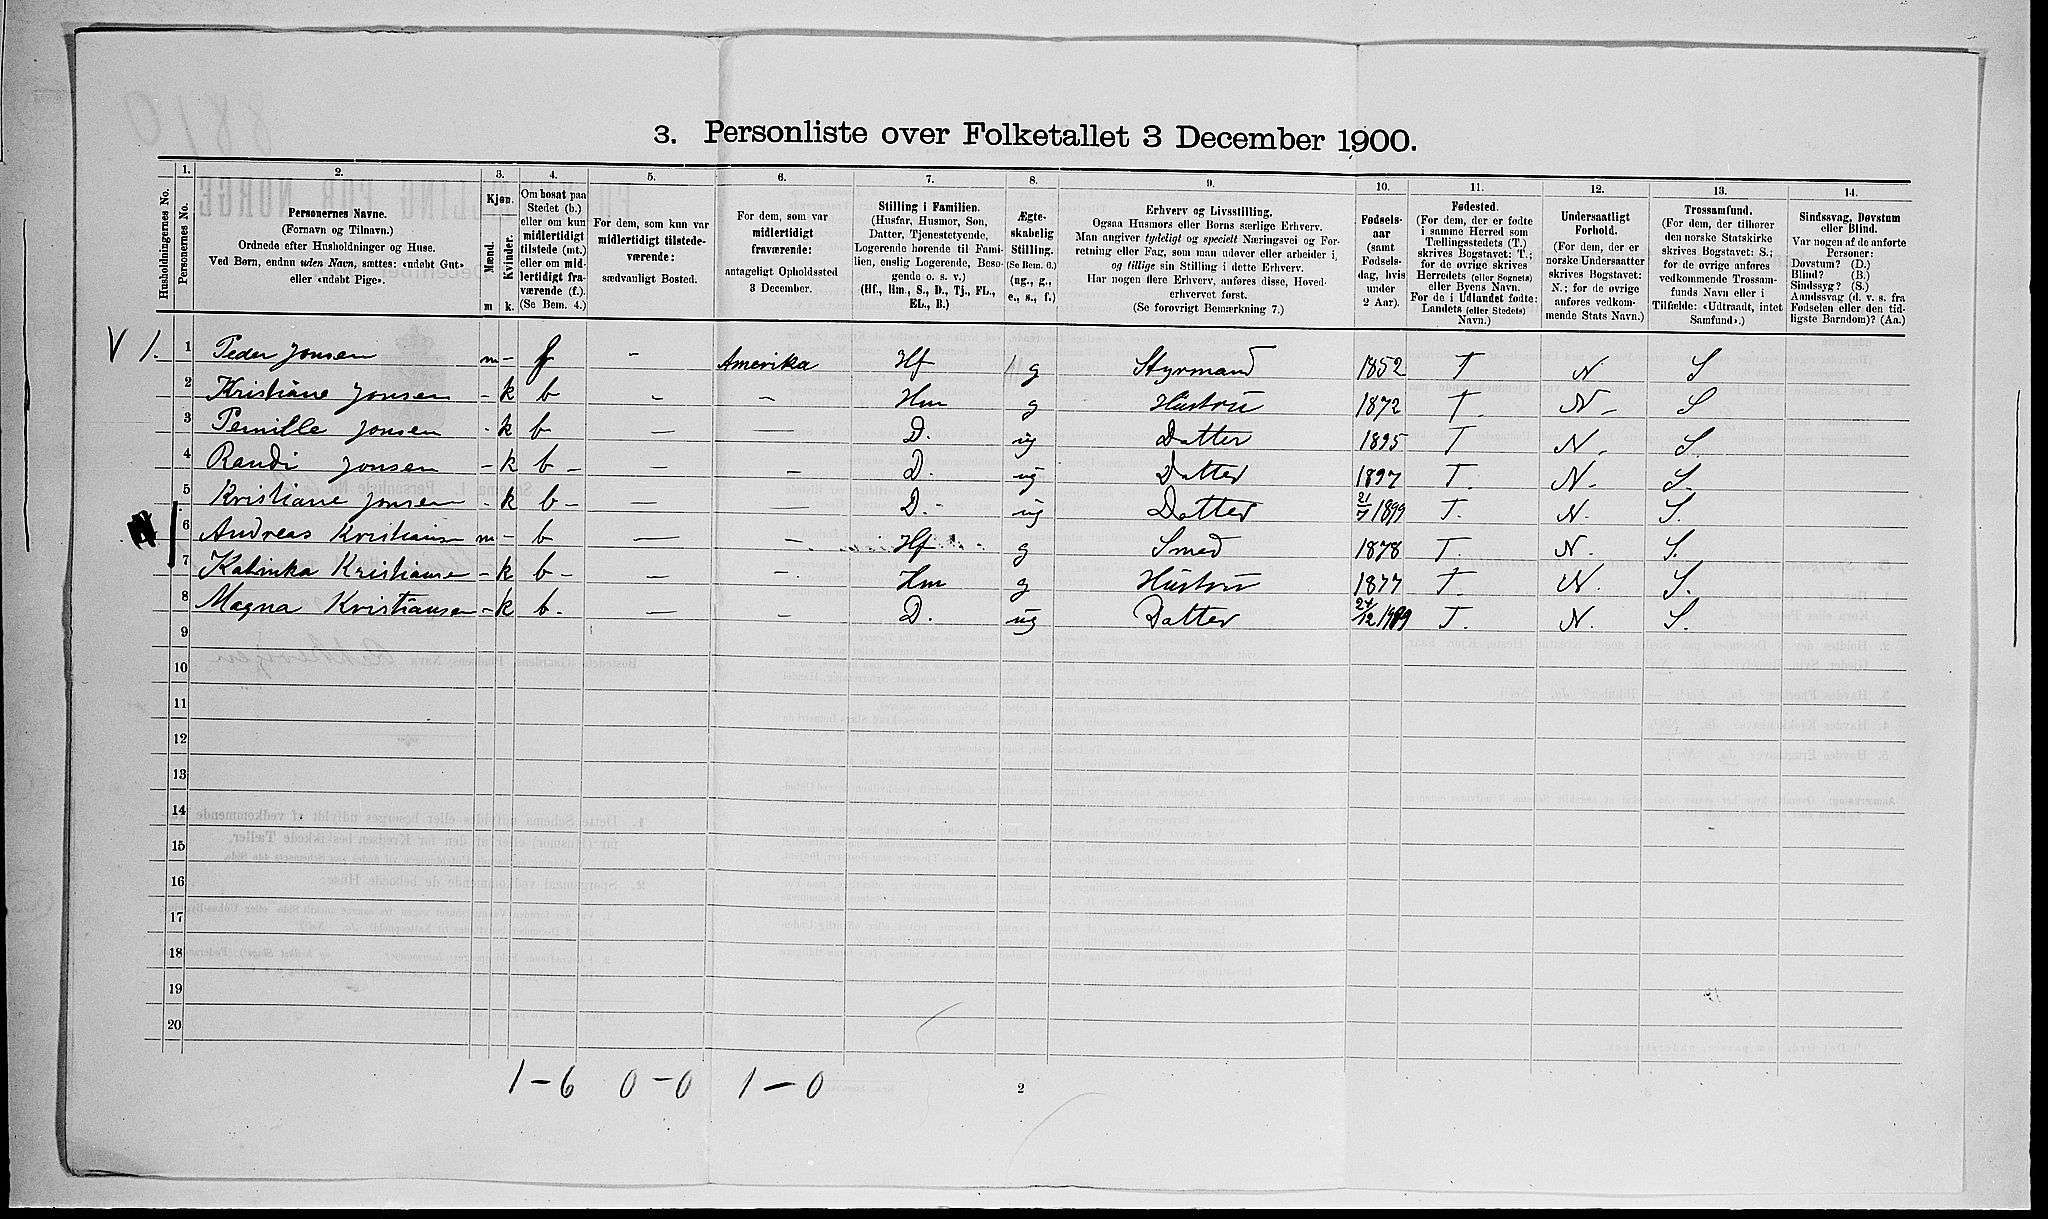 3. Personliste over Folketallet 3 December 1900.
Husholdningernes No.
1. Personernes No.
2. Personernes Navne.
(Fornavn og Tilnavn.)
Ordnede efter Husholdninger og Huse.
Ved Børn, endnu uden Navn, sættes: «udøbt Gut»
eller «udøbt Pige».
3. Kjøn.
Mænd. m
Kvinder. k.
4. Om bosat paa
Stedet (b.)
eller om kun
midlertidigt
tilstede (mt.)
eller om mid-
lertidigt fra-
værende (f.).
(Se Bem. 4.)
5. For dem, som kun var
midlertidigt tilstede-
værende:
sædvanligt Bosted.
6. For dem, som var
midlertidigt
fraværende:
antageligt Opholdssted
3 December.
7. Stilling i Familien.
(Husfar, Husmor, Søn,
Datter, Tjenestetyende,
Logerende hørende til Fami-
lien, enslig Logerende, Besø-
gende o. s. v.)
(Hf., Hm., S., D., Tj., FL.,
EL., B.)
8. Ægte-
skabelig
Stilling.
(Se Bem. 6.)
(ug., g.,
e., s., f.)
9. Erhverv og Livsstilling.
Ogsaa Husmors eller Børns særlige Erhverv.
Man angiver tydeligt og specielt Næringsvei og For-
retning eller Fag, som man udøver eller arbeider i,
og tillige sin Stilling i dette Erhverv.
Har nogen flere Erhverv, anføres disse, Hoved-
erhvervet først.
(Se forøvrigt Bemærkning 7.)
10. Fødsels-
aar
(samt
Fødsels-
dag, hvis
under
2 Aar).
11. Fødested.
(For dem, der er fødte
i samme Herred som
Tællingsstedets (T.)
skrives Bogstavet: T.;
for de øvrige skrives
Herredets (eller Sognets)
eller Byens Navn.
For de i Udlandet fødte:
Landets (eller Stedets)
Navn.)
12. Undersaatligt
Forhold.
(For dem, der er
norske Undersaatter
skrives Bogstavet:
N.; for de øvrige
anføres vedkom-
mende Stats Navn.)
13. Trossamfund.
(For dem, der tilhører
den norske Statskirke
skrives Bogstavet: S.;
for de øvrige anføres
vedkommende Trossam-
funds Navn eller i
Tilfælde: «Udtraadt, intet
Samfund».)
14. Sindssvag, Døvstum
eller Blind.
Var nogen af de anførte
Personer:
Døvstum? (D.)
Blind? (B.)
Sindssyg? (S.)
Aandssvag (d. v. s. fra
Fødselen eller den tid-
ligste Barndom)? (Aa.)
V 1. 1 Peder Jonsen m - f - Amerika Hf g Styrmand 1852 T N S
2 Kristiane Jonsen - k b - - Hm g Hustru 1872 T. N - S
3 Pernille Jonsen - k b - — — D. ug Datter 1895 T N. S.
4 Randi Jonsen - k b - — - D. ug Datter 1897 T. N. S.
5 Kristiane Jonsen - k b - — — D. - ug Datter 21/7 1899 T. N. S.
6 Andreas Kristianse m - b — - Hf g Smed 1878 T. N. S.
7 Katinka Kristianse - k b - — - Hm g Hustru 1877 T. N. S.
8 Magna Kristiansen - k b - — - D. ug Datter 24/12 1899 T. N. S.
9
10
11
12
13
14
15
16
17
18
19
20
1 - 6 0 - 0 1 - 0
2